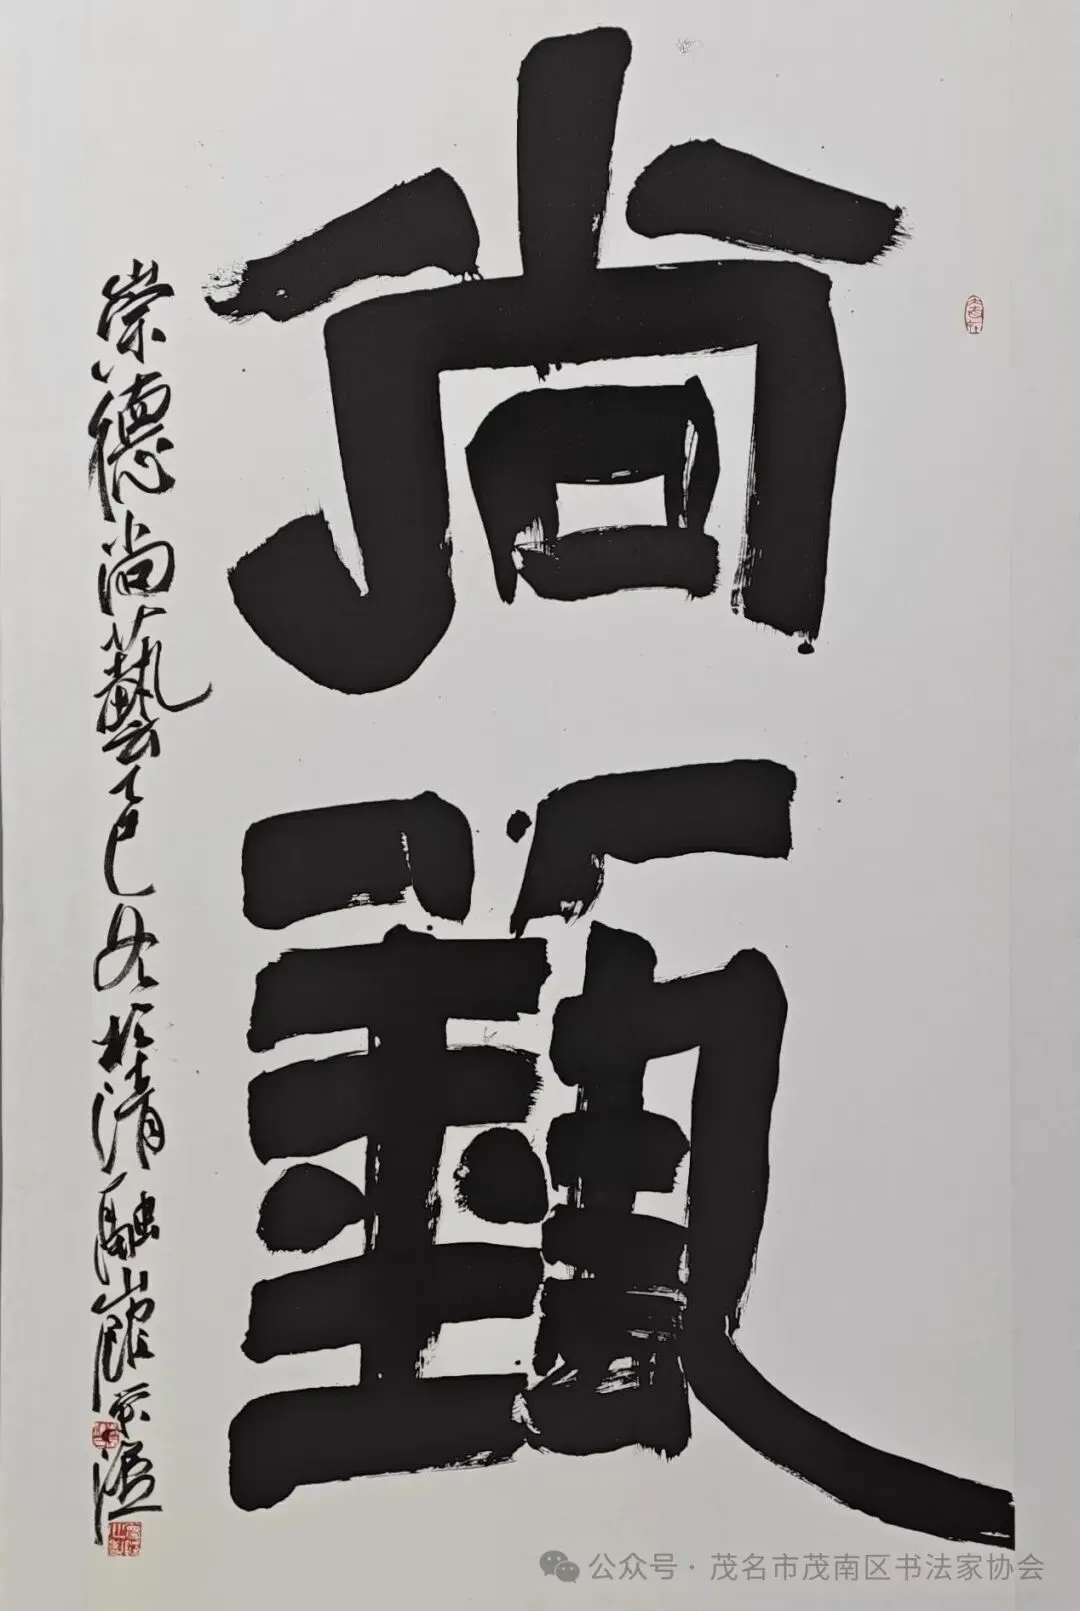 尚
藝
崇德尚藝乙巳冬於清融山館
公众号·茂名市茂南区书法家协会